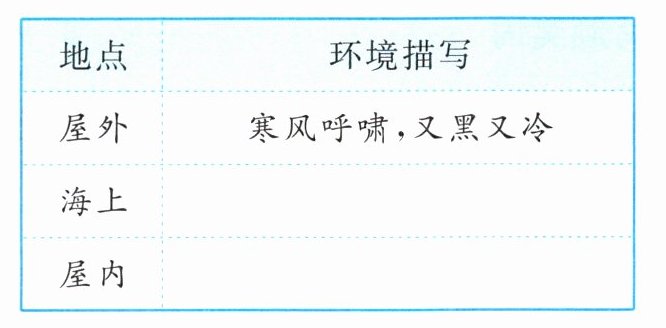 地点 环境描写
屋外 寒风呼啸，又黑又冷
海上
屋内